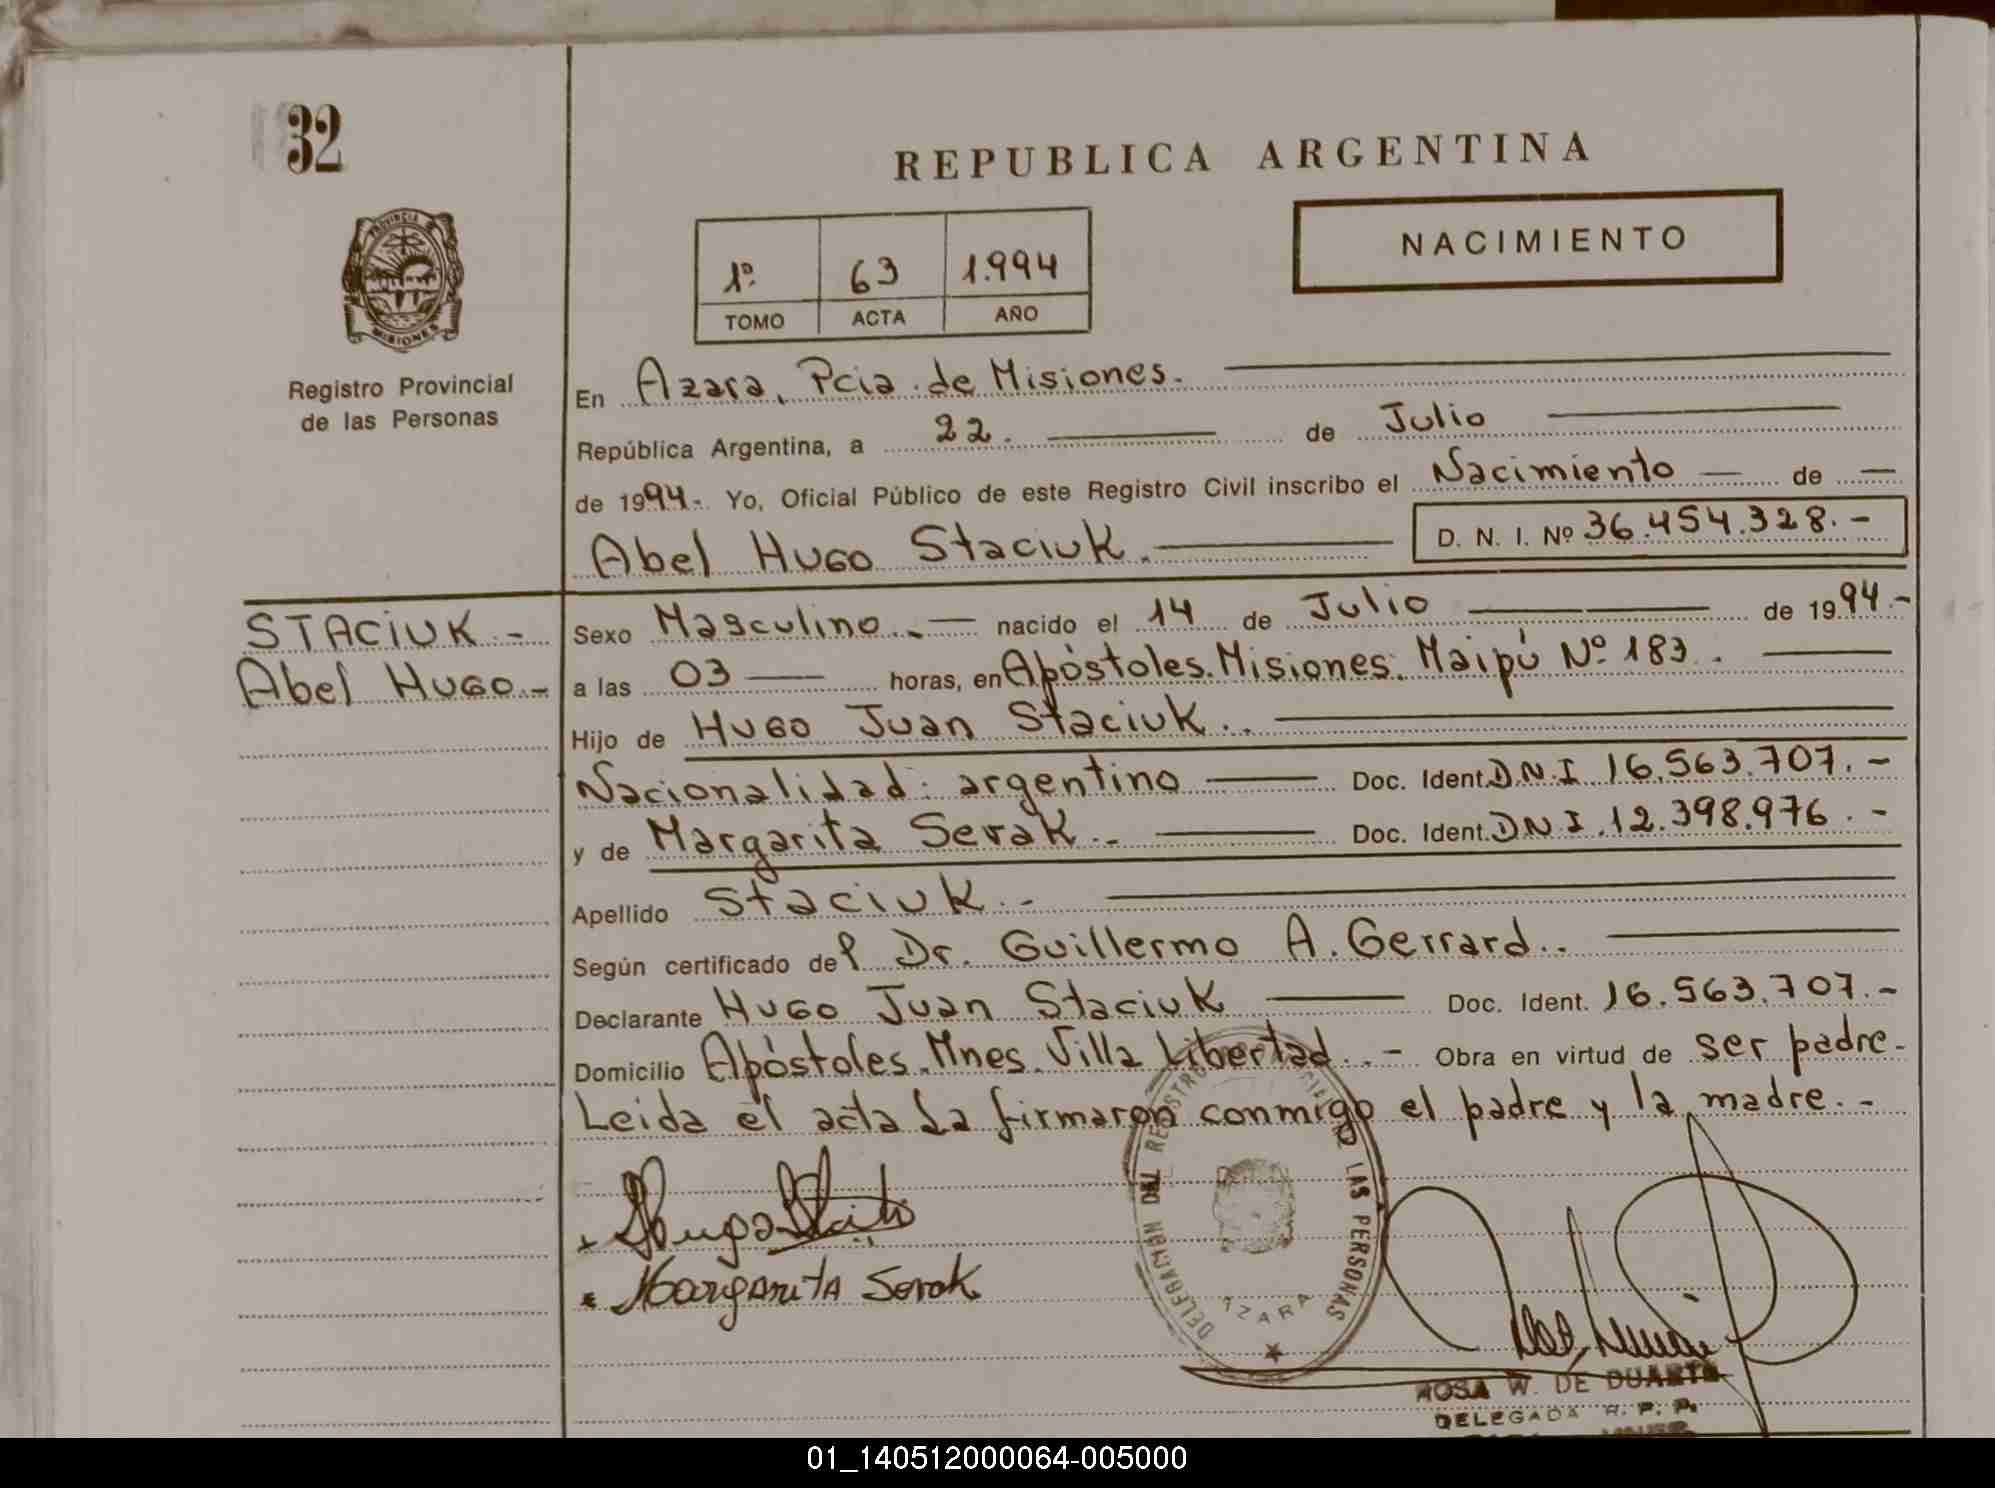 32
REPUBLICA ARGENTINA
NACIMIENTO
1º. 63 1.994
TOMO ACTA AÑO
PROVINCIA
MISIONES
Registro Provincial
de las Personas
En Azara, Pcia. de Misiones.
República Argentina, a 22. de Julio
de 1994.- Yo, Oficial Público de este Registro Civil inscribo el Nacimiento de
Abel Hugo Staciuk. D. N. I. Nº 36.454.328.-
STACIUK.-
Abel Hugo.-
Sexo Masculino.- nacido el 14 de Julio de 1994.-
a las 03 horas, en Apóstoles. Misiones. Maipú Nº 183.
Hijo de Hugo Juan Staciuk..
Nacionalidad: argentino Doc. Ident. D.N.I 16.563.707.-
y de Margarita Serak.- Doc. Ident. DNI.12.398.976.-
Apellido Staciuk.-
Según certificado del Dr. Guillermo A. Gerrard..
Declarante Hugo Juan Staciuk Doc. Ident. 16.563.707.-
Domicilio Apóstoles. Mnes. Villa Libertad..- Obra en virtud de ser padre.-
Leida el acta la firmaron conmigo el padre y la madre.-
Margarita Serak
DELEGACION DEL REGISTRO PROVINCIAL DE LAS PERSONAS
AZARA
ROSA W. DE DUARTE
DELEGADA R. P. P.
01_140512000064-005000